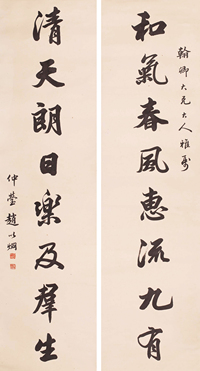 和氣春風惠流九有
翰卿大兄大人雅屬
清天朗日樂及群生
仲瑩趙以炯